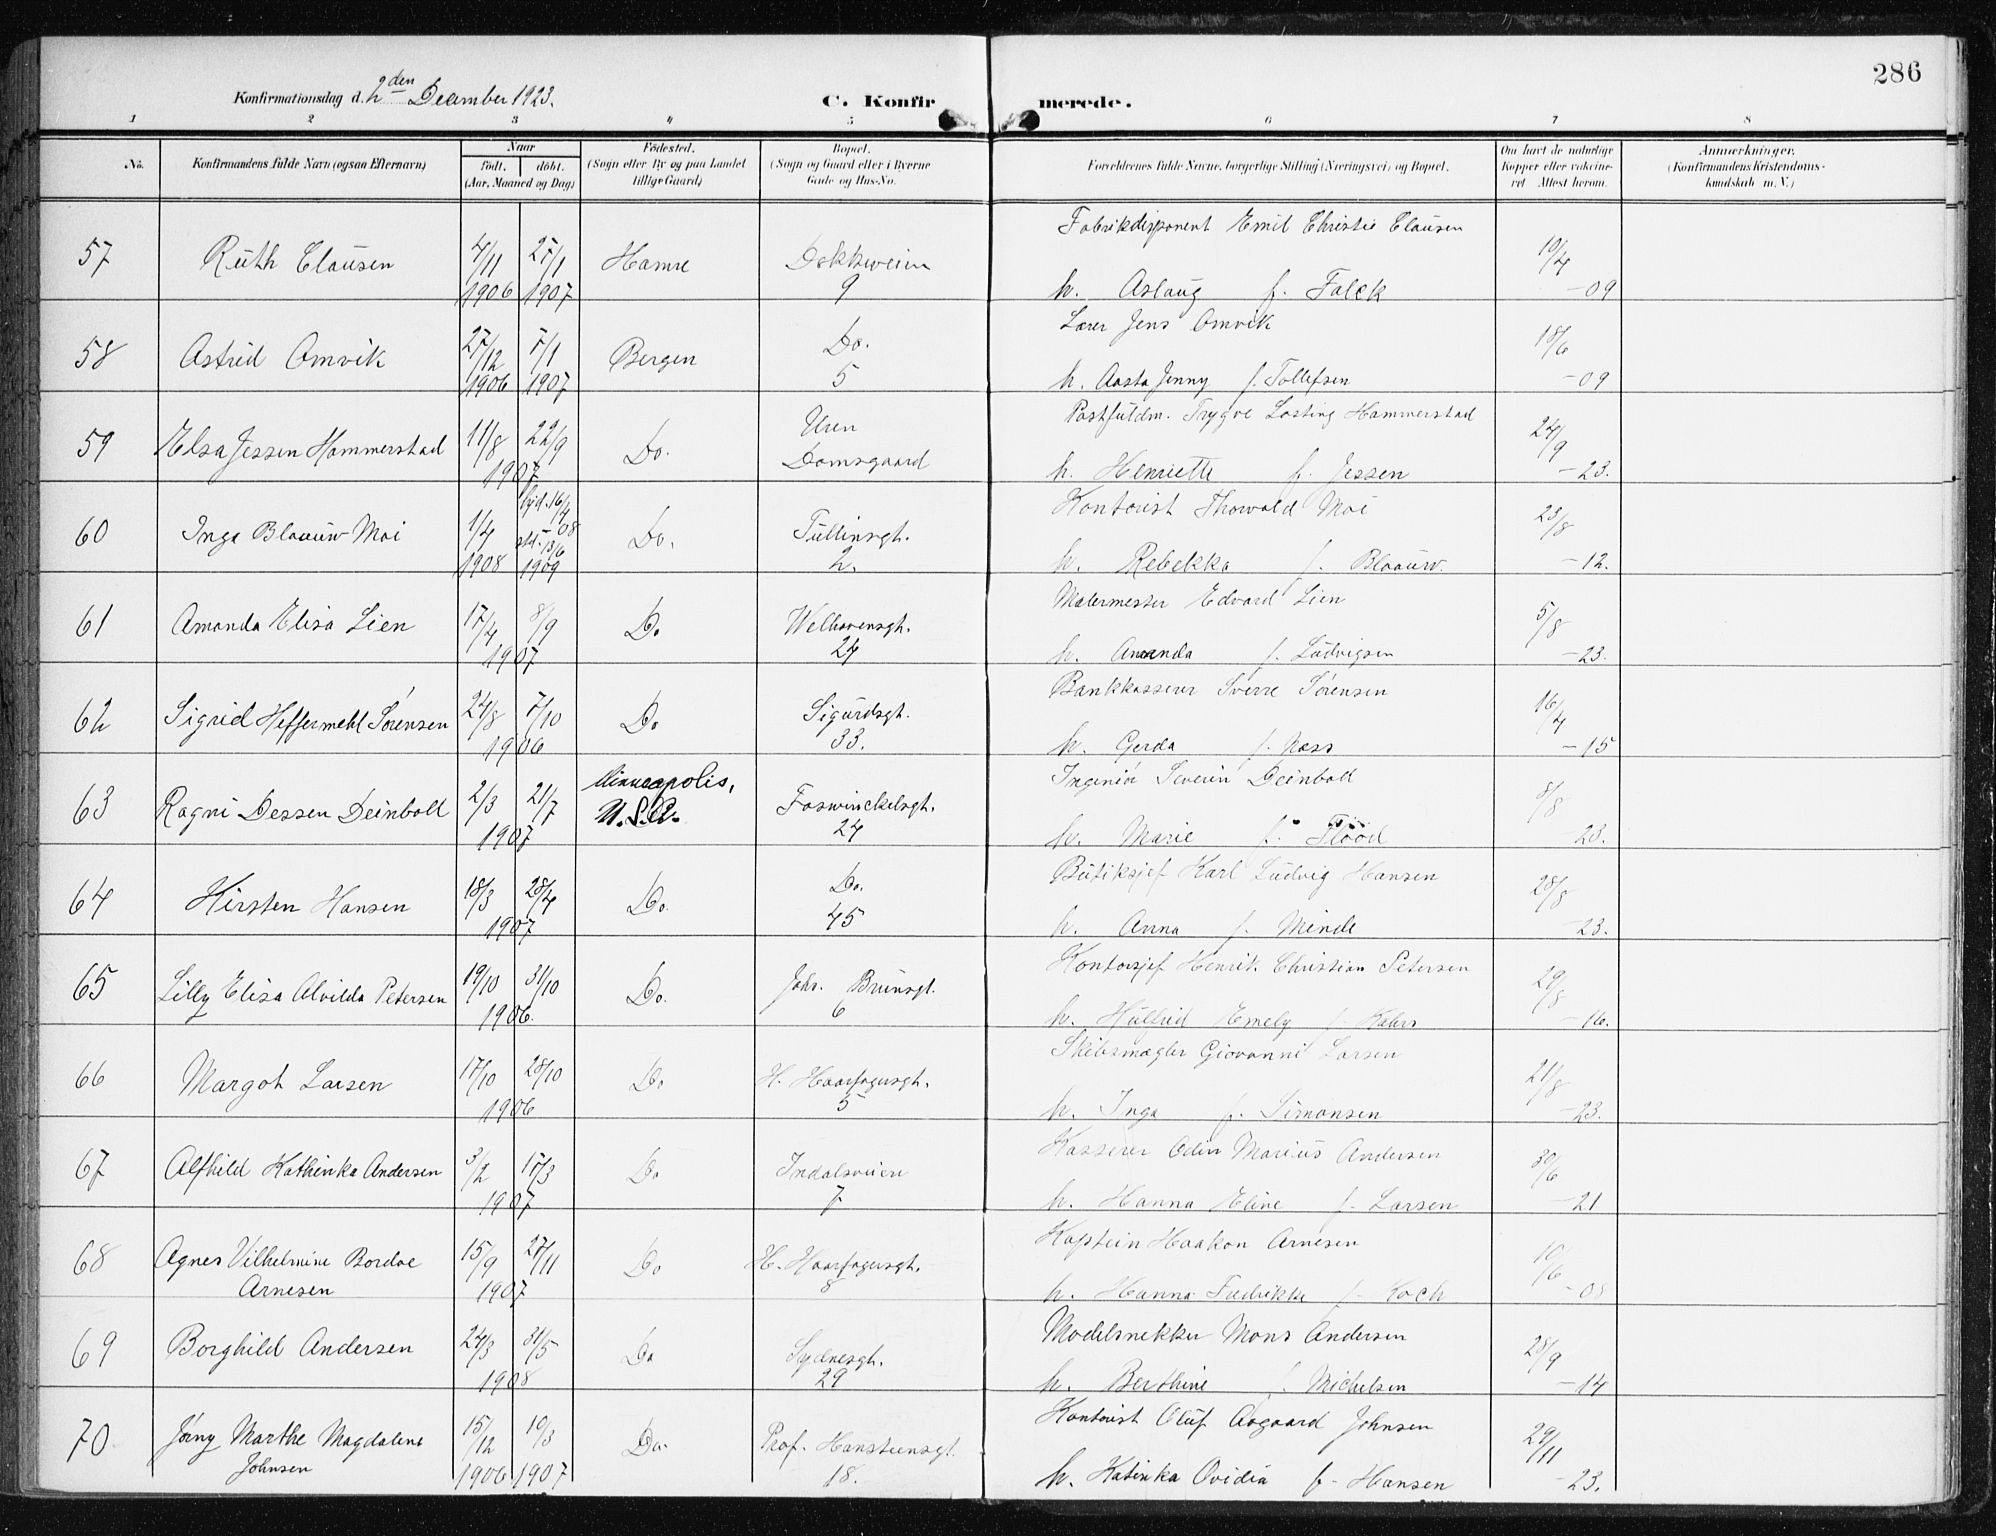 286
Konfirmationsdag d. 2den December 1923.
C. Konfirmerede.
1 2 3 4 5 6 7 8
No.
Konfirmandens fulde Navn (ogsaa Efternavn)
Naar
født. døbt.
(Aar, Maaned og Dag)
Fødested.
(Sogn eller By og paa Landet
tillige Gaard)
Bopæl.
(Sogn og Gaard eller i Byerne
Gade og Hus-No.
Forældrenes fulde Navne, borgerlige Stilling (Næringsvei) og Bopæl.
Om havt de naturlige
Kopper eller vaccine-
ret Attest herom.
Anmærkninger.
(Konfirmandens Kristendoms-
kundskab m. V.)
Fabrikdisponent Emil Christie Clausen
57 Ruth Clausen 4/11 27/1 Hamre Dokkeveien 10/4
1906 1907 9 h. Aslaug f. Falck -09
Lærer Jens Omvik
58 Astrid Omvik 27/12 7/1 Bergen Do. 18/6
1906 1907 5 h. Aasta Jenny f. Tollefsen -09
Postfuldm. Trygve Lasting Hammerstad
59 Elsa Jessen Hammerstad 11/8 22/9 Do. Uren 24/9
1907 Domsgaard h. Henriette f. Jessen -23.
hjd. 16/4 Kontorist Thorvald Moi
60 Inga Blaauw-Moi 1/4 -08 Do. Tullinsgt. 23/8
std. 13/6
1908 1909 2. h. Rebekka f. Blaauw. -12.
Malermester Edvard Lien
61 Amanda Elisa Lien 17/4 8/9 Do Welhavensgt. 5/8
1907 24 h. Amanda f. Ludvigsen -23.
Bankkasserer Sverre Sørensen
62 Sigrid Heffermehl Sørensen 24/8 7/10 Do Sigurdsgt. 16/4
1906 33. h. Gerda f. Næss -15
Ingeniør Severin Deinboll
63 Ragni Dessen Deinboll 2/3 21/7 Minneapolis, Fosswinckelsgt. 8/8
1907 U.S.A. 24 h. Marie f. Flööd -23.
Butiksjef Karl Ludvig Hansen
64 Kirsten Hansen 18/3 28/4 Do. Do. 28/8
1907 45 h. Anna f. Minde -23.
Kontorsjef Henrik Christian Petersen
65 Lilly Elisa Alvilda Petersen 19/10 31/10 Do. Johs. Brunsgt. 29/8
1906. 6 h. Hulfrid Emely f. Kahrs -16.
Skibsmægler Giovanni Larsen
66 Margot Larsen 17/10 28/10 Do H. Haarfagersgt. 21/8
1906 5 h. Inga f. Simonsen -23.
Kasserer Odin Marius Andersen
67 Alfhild Kathinka Andersen 3/2 17/3 Do Indalsveien 30/6
1907 7 h. Hanna Eline f. Larsen -21
Kaptein Haakon Arnesen
68 Agnes Vilhelmine Bordoe 15/9 27/11 Do H. Haarfagersgt. 10/6
Arnesen 1907 8 h. Hanna Fredrikke f. Koch -08
Modelsnekker Mons Andersen
69 Borghild Andersen 24/3 31/5 Do Sydnesgt. 28/9
1908 29 h. Berthine f. Michelsen -14
Kontorist Oluf Aagaard Johnsen
70. Jenny Marthe Magdalene 15/12 10/3 Do. Prof. Hansteensgt. 29/11
Johnsen 1906 1907 18. h. Katinka Ovidia f. Hansen -23.